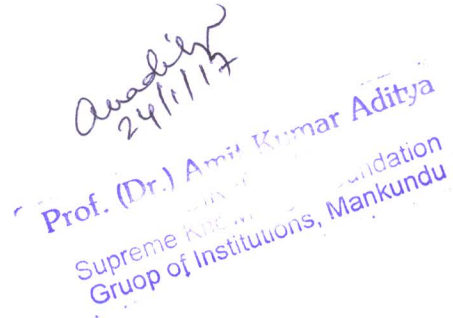 24/1/17
Prof. (Dr.) Amit Kumar Aditya
Supreme Foundation
Gruop of Institutions, Mankundu